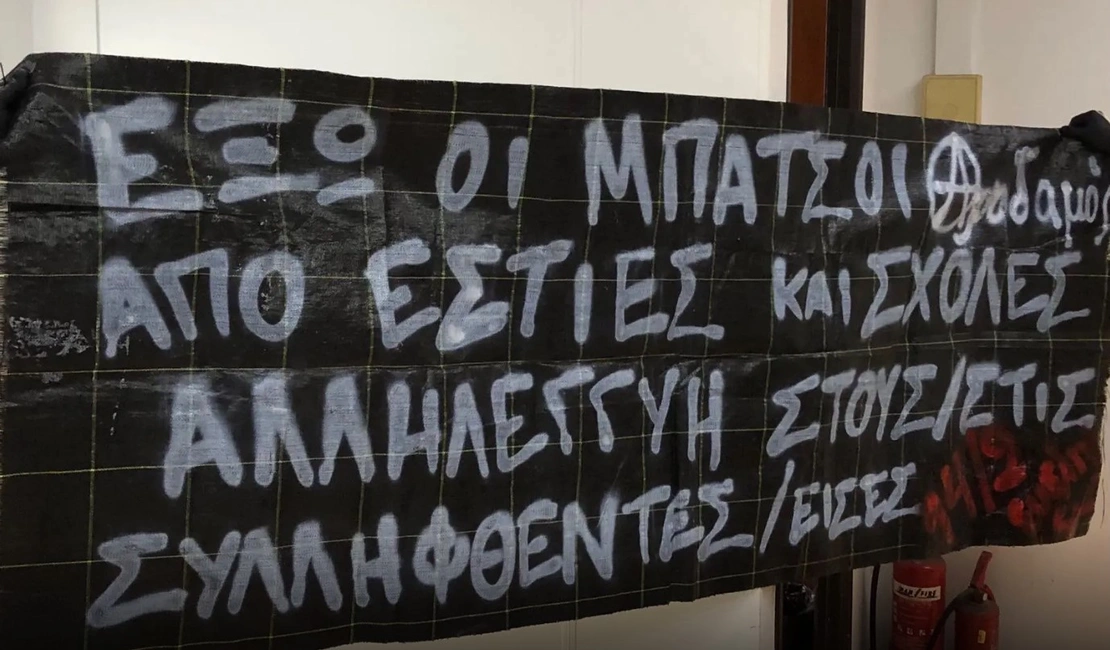 ΕΞΩ ΟΙ ΜΠΑΤΣΟΙ
ΑΠΟ ΕΣΤΙΕΣ ΚΑΙ ΣΧΟΛΕΣ
ΑΛΛΗΛΕΓΓΥΗ ΣΤΟΥΣ/ΣΤΙΣ
ΣΥΛΛΗΦΘΕΝΤΕΣ/ΕΙΣΕΣ